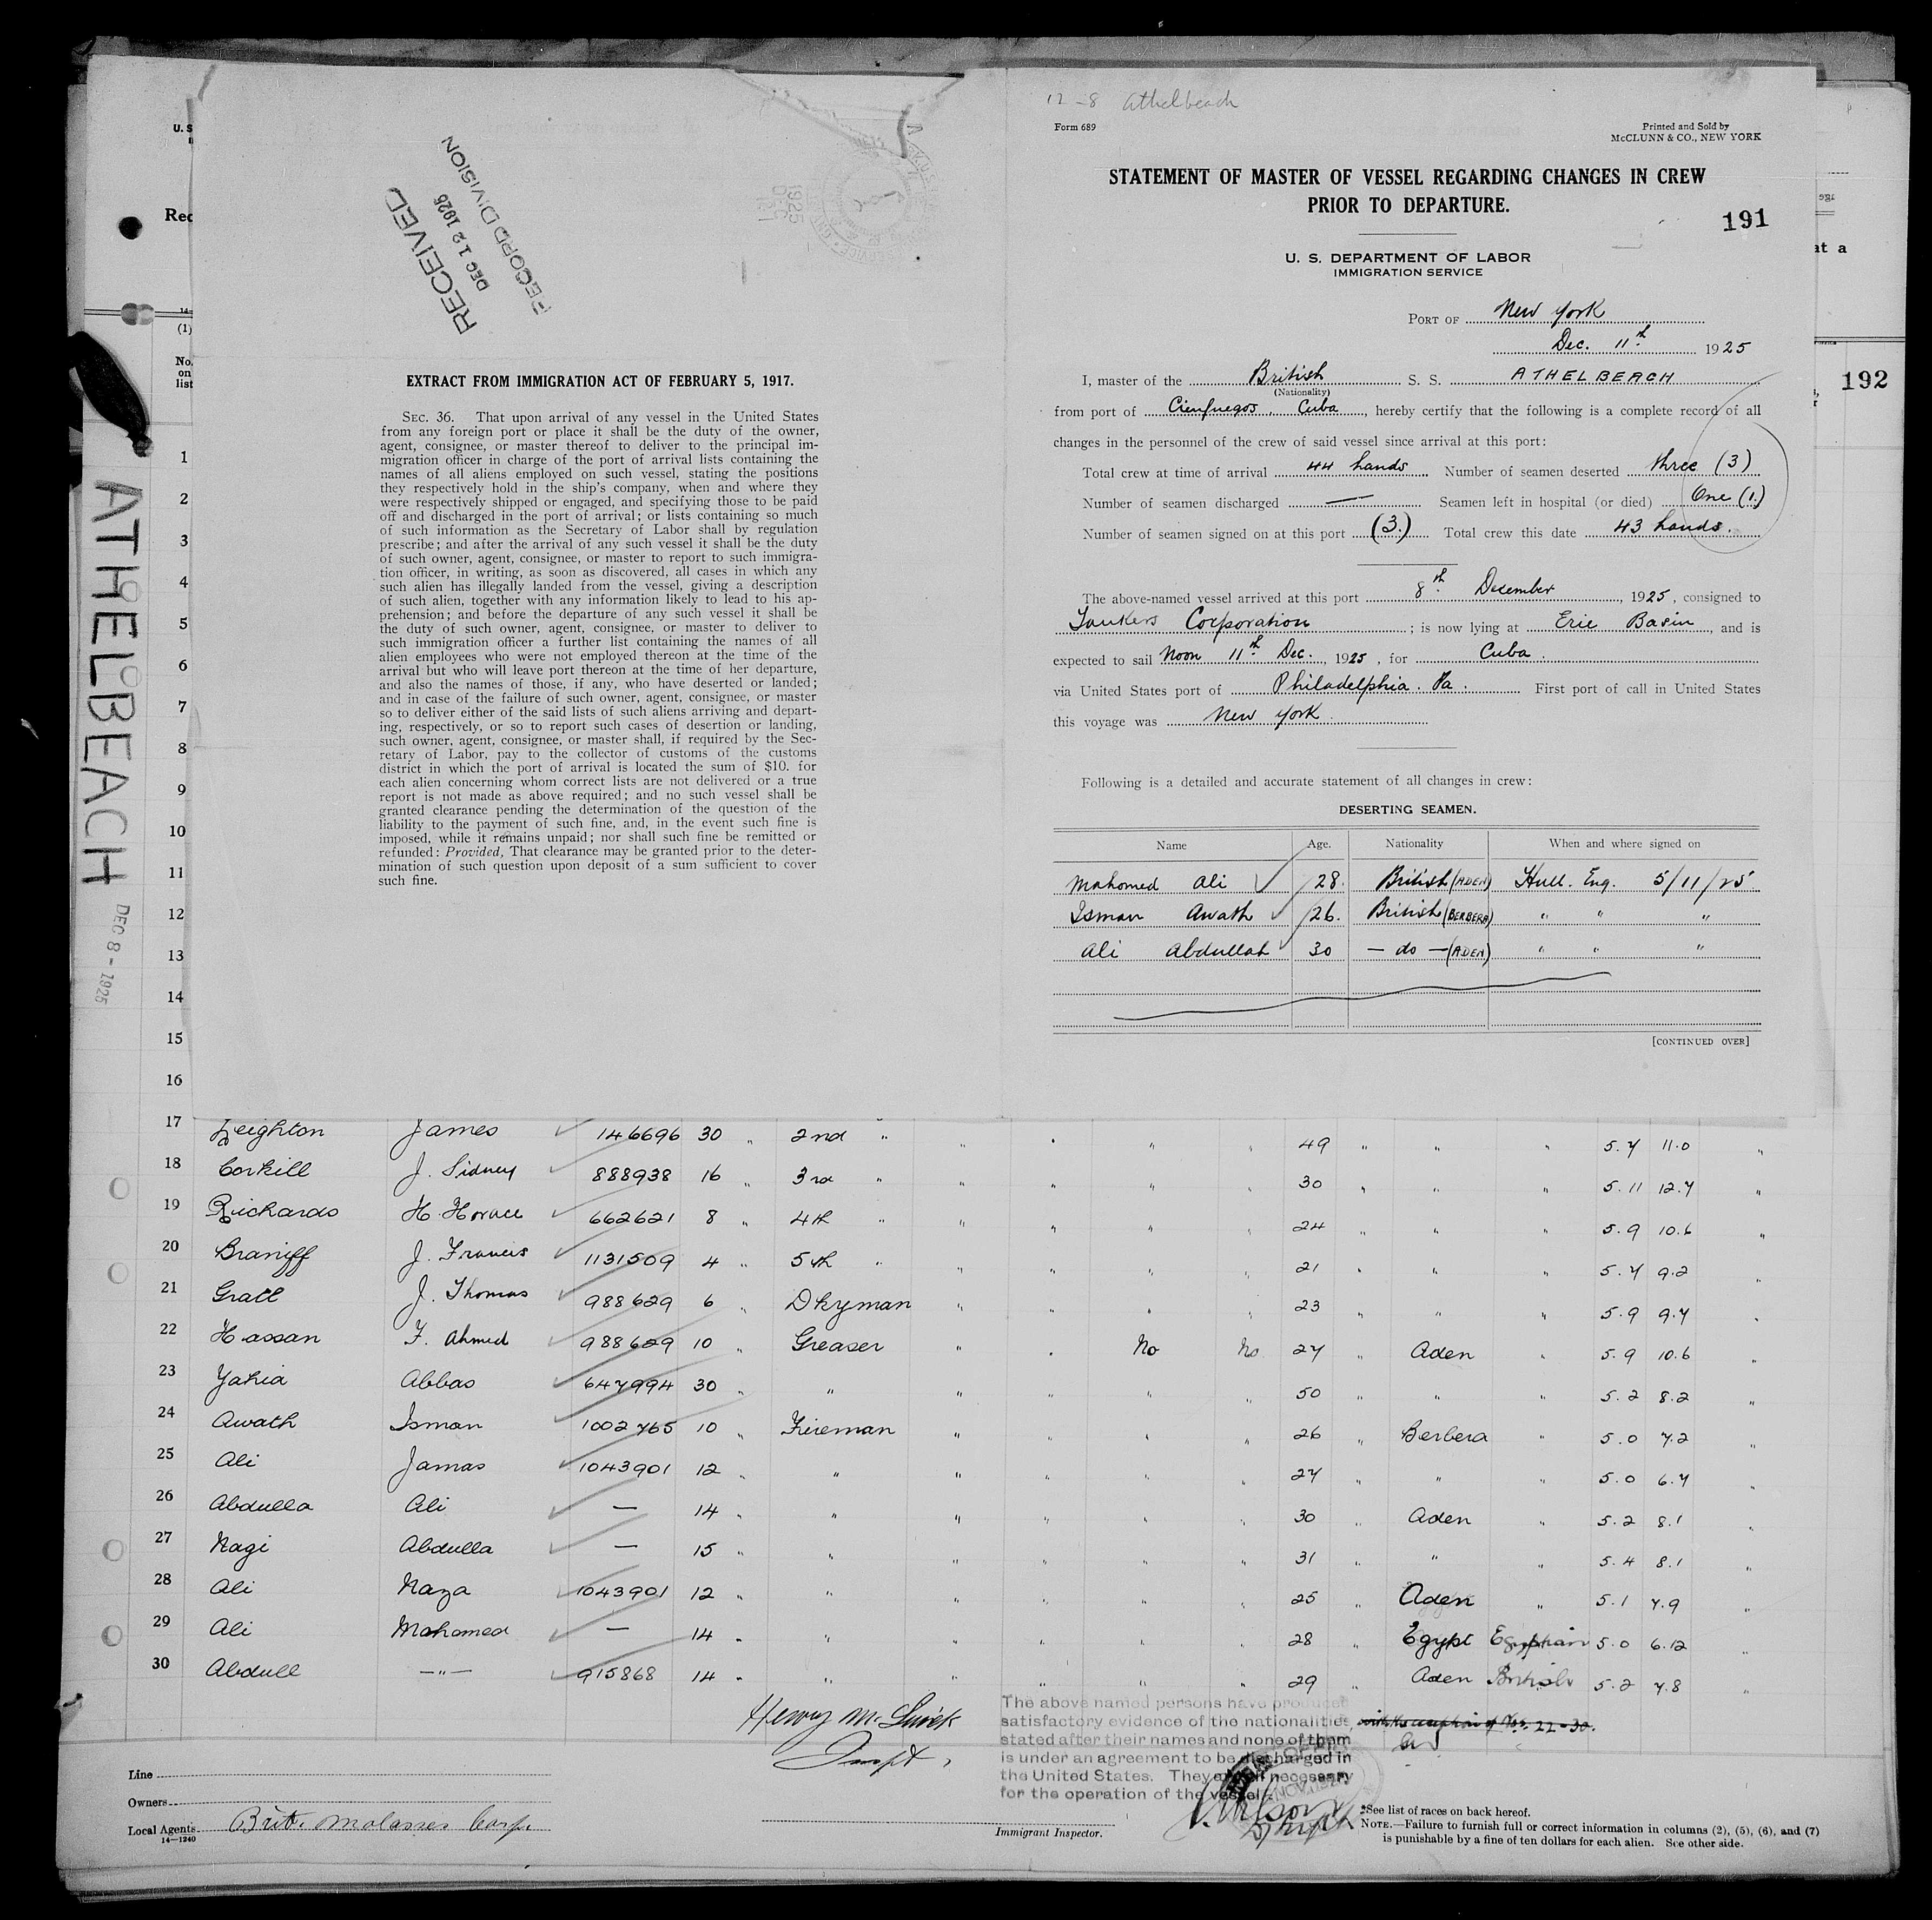 12-8 Athelbeach
Form 689
Printed and Sold by
McCLUNN & CO., NEW YORK
STATEMENT OF MASTER OF VESSEL REGARDING CHANGES IN CREW
PRIOR TO DEPARTURE.
191
U. S. DEPARTMENT OF LABOR
IMMIGRATION SERVICE
PORT OF New York
Dec. 11th 1925
I, master of the British S. S. ATHELBEACH
(Nationality)
from port of Cienfuegos, Cuba, hereby certify that the following is a complete record of all
changes in the personnel of the crew of said vessel since arrival at this port:
Total crew at time of arrival 44 hands Number of seamen deserted three (3)
Number of seamen discharged — Seamen left in hospital (or died) One (1.)
Number of seamen signed on at this port (3.) Total crew this date 43 hands.
The above-named vessel arrived at this port 8th December, 1925, consigned to
Tankers Corporation; is now lying at Erie Basin, and is
expected to sail Noon 11th Dec., 1925, for Cuba.
via United States port of Philadelphia. Pa. First port of call in United States
this voyage was New York.
Following is a detailed and accurate statement of all changes in crew:
DESERTING SEAMEN.
Name Age. Nationality When and where signed on
Mahomed Ali 28. British (ADEN) Hull. Eng. 5/11/25
Isman Awath 26. British (BERBERA) " " "
Ali Abdullah 30 — do — (ADEN) " " "
[CONTINUED OVER]
RECEIVED
DEC 12 1925
RECORD DIVISION
EXTRACT FROM IMMIGRATION ACT OF FEBRUARY 5, 1917.
SEC. 36. That upon arrival of any vessel in the United States
from any foreign port or place it shall be the duty of the owner,
agent, consignee, or master thereof to deliver to the principal im-
migration officer in charge of the port of arrival lists containing the
names of all aliens employed on such vessel, stating the positions
they respectively hold in the ship's company, when and where they
were respectively shipped or engaged, and specifying those to be paid
off and discharged in the port of arrival; or lists containing so much
of such information as the Secretary of Labor shall by regulation
prescribe; and after the arrival of any such vessel it shall be the duty
of such owner, agent, consignee, or master to report to such immigra-
tion officer, in writing, as soon as discovered, all cases in which any
such alien has illegally landed from the vessel, giving a description
of such alien, together with any information likely to lead to his ap-
prehension; and before the departure of any such vessel it shall be
the duty of such owner, agent, consignee, or master to deliver to
such immigration officer a further list containing the names of all
alien employees who were not employed thereon at the time of the
arrival but who will leave port thereon at the time of her departure,
and also the names of those, if any, who have deserted or landed;
and in case of the failure of such owner, agent, consignee, or master
so to deliver either of the said lists of such aliens arriving and depart-
ing, respectively, or so to report such cases of desertion or landing,
such owner, agent, consignee, or master shall, if required by the Sec-
retary of Labor, pay to the collector of customs of the customs
district in which the port of arrival is located the sum of $10. for
each alien concerning whom correct lists are not delivered or a true
report is not made as above required; and no such vessel shall be
granted clearance pending the determination of the question of the
liability to the payment of such fine, and, in the event such fine is
imposed, while it remains unpaid; nor shall such fine be remitted or
refunded: Provided, That clearance may be granted prior to the deter-
mination of such question upon deposit of a sum sufficient to cover
such fine.
192
at a
U. S
Rec
(1)
No.
on
list
ATHELBEACH
DEC 8 - 1925
1
2
3
4
5
6
7
8
9
10
11
12
13
14
15
16
17 Leighton James 146696 30 " 2nd " " " " " 49 " " " 5.7 11.0 "
18 Corkill J. Sidney 888938 16 " 3rd " " " " " 30 " " " 5.11 12.7 "
19 Richards H. Horace 662621 8 " 4th " " " " " 24 " " " 5.9 10.6 "
20 Braniff J. Francis 1131509 4 " 5th " " " " " 21 " " " 5.7 9.2 "
21 Gratt J. Thomas 988629 6 " Dkyman " " " " 23 " " " 5.9 9.7 "
22 Hassan F. Ahmed 988629 10 " Greaser " " No No 27 " Aden " 5.9 10.6 "
23 Yahia Abbas 647994 30 " " " " " " 50 " " " 5.2 8.2 "
24 Awath Isman 1002765 10 " Fireman " " " " 26 " Berbera " 5.0 7.2 "
25 Ali Jamas 1043901 12 " " " " " " 27 " " " 5.0 6.7 "
26 Abdulla Ali — 14 " " " " " " 30 " Aden " 5.2 8.1 "
27 Nagi Abdulla — 15 " " " " " " 31 " " " 5.4 8.1 "
28 Ali Naza 1043901 12 " " " " " " 25 " Aden " 5.1 7.9 "
29 Ali Mahomed — 14 " " " " " " 28 " Egypt Egyptian 5.0 6.12 "
30 Abdull —"— 915868 14 " " " " " " 29 " Aden British 5.2 7.8 "
The above named persons have produced
satisfactory evidence of the nationalities
stated after their names and none of them
is under an agreement to be discharged in
the United States. They are all necessary
for the operation of the vessel.
Line
Owners
Local Agents Brit. Molasses Corp.
14—1240
Immigrant Inspector.
*See list of races on back hereof.
NOTE.—Failure to furnish full or correct information in columns (2), (5), (6), and (7)
is punishable by a fine of ten dollars for each alien. See other side.